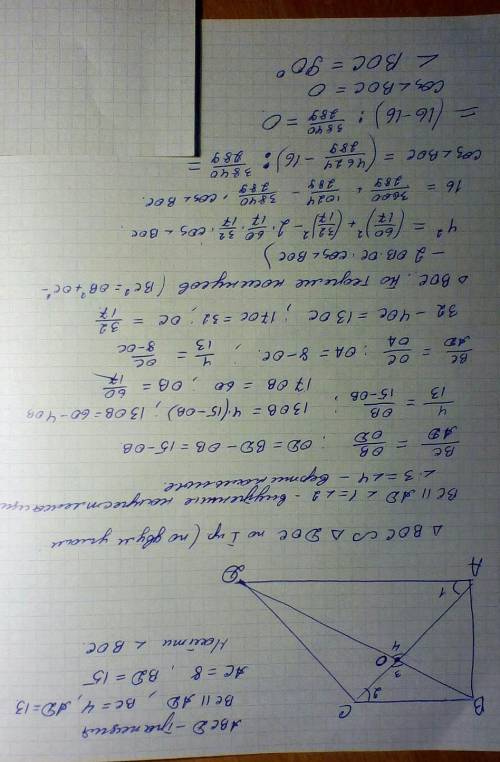 ABCD – трапеция
BC || AD, BC = 4, AD = 13
AC = 8, BD = 15
Найти ∠ BOC.
B
C
O
3
2
4
1
A
D
△ BOC ∽ △ DOC по I пр (по двум углам
BC || AD ∠1 = ∠2 - внутренние накрест лежащие
∠3 = ∠4 – вертикальные
BC/AD = OB/OD ; OD = BD – OB = 15 – OB
4/13 = OB/15-OB ; 13OB = 4·(15-OB) ; 13OB = 60 – 4OB
17OB = 60 ; OB = 60/17
BC/AD = OC/OA ; OA = 8-OC ; 4/13 = OC/8-OC
32 – 4OC = 13OC ; 17OC = 32 ; OC = 32/17
△ BOC. По теореме косинусов (BC² = OB² + OC² -
– 2·OB·OC·cos∠BOC)
4² = (60/17)² + (32/17)² – 2·60/17·32/17·cos∠BOC.
16 = 3600/289 + 1024/289 – 3840/289 · cos∠BOC.
cos∠BOC = (4624/289 – 16) : 3840/289 =
= (16-16) : 3840/289 = 0
cos∠BOC = 0
∠ BOC = 90°